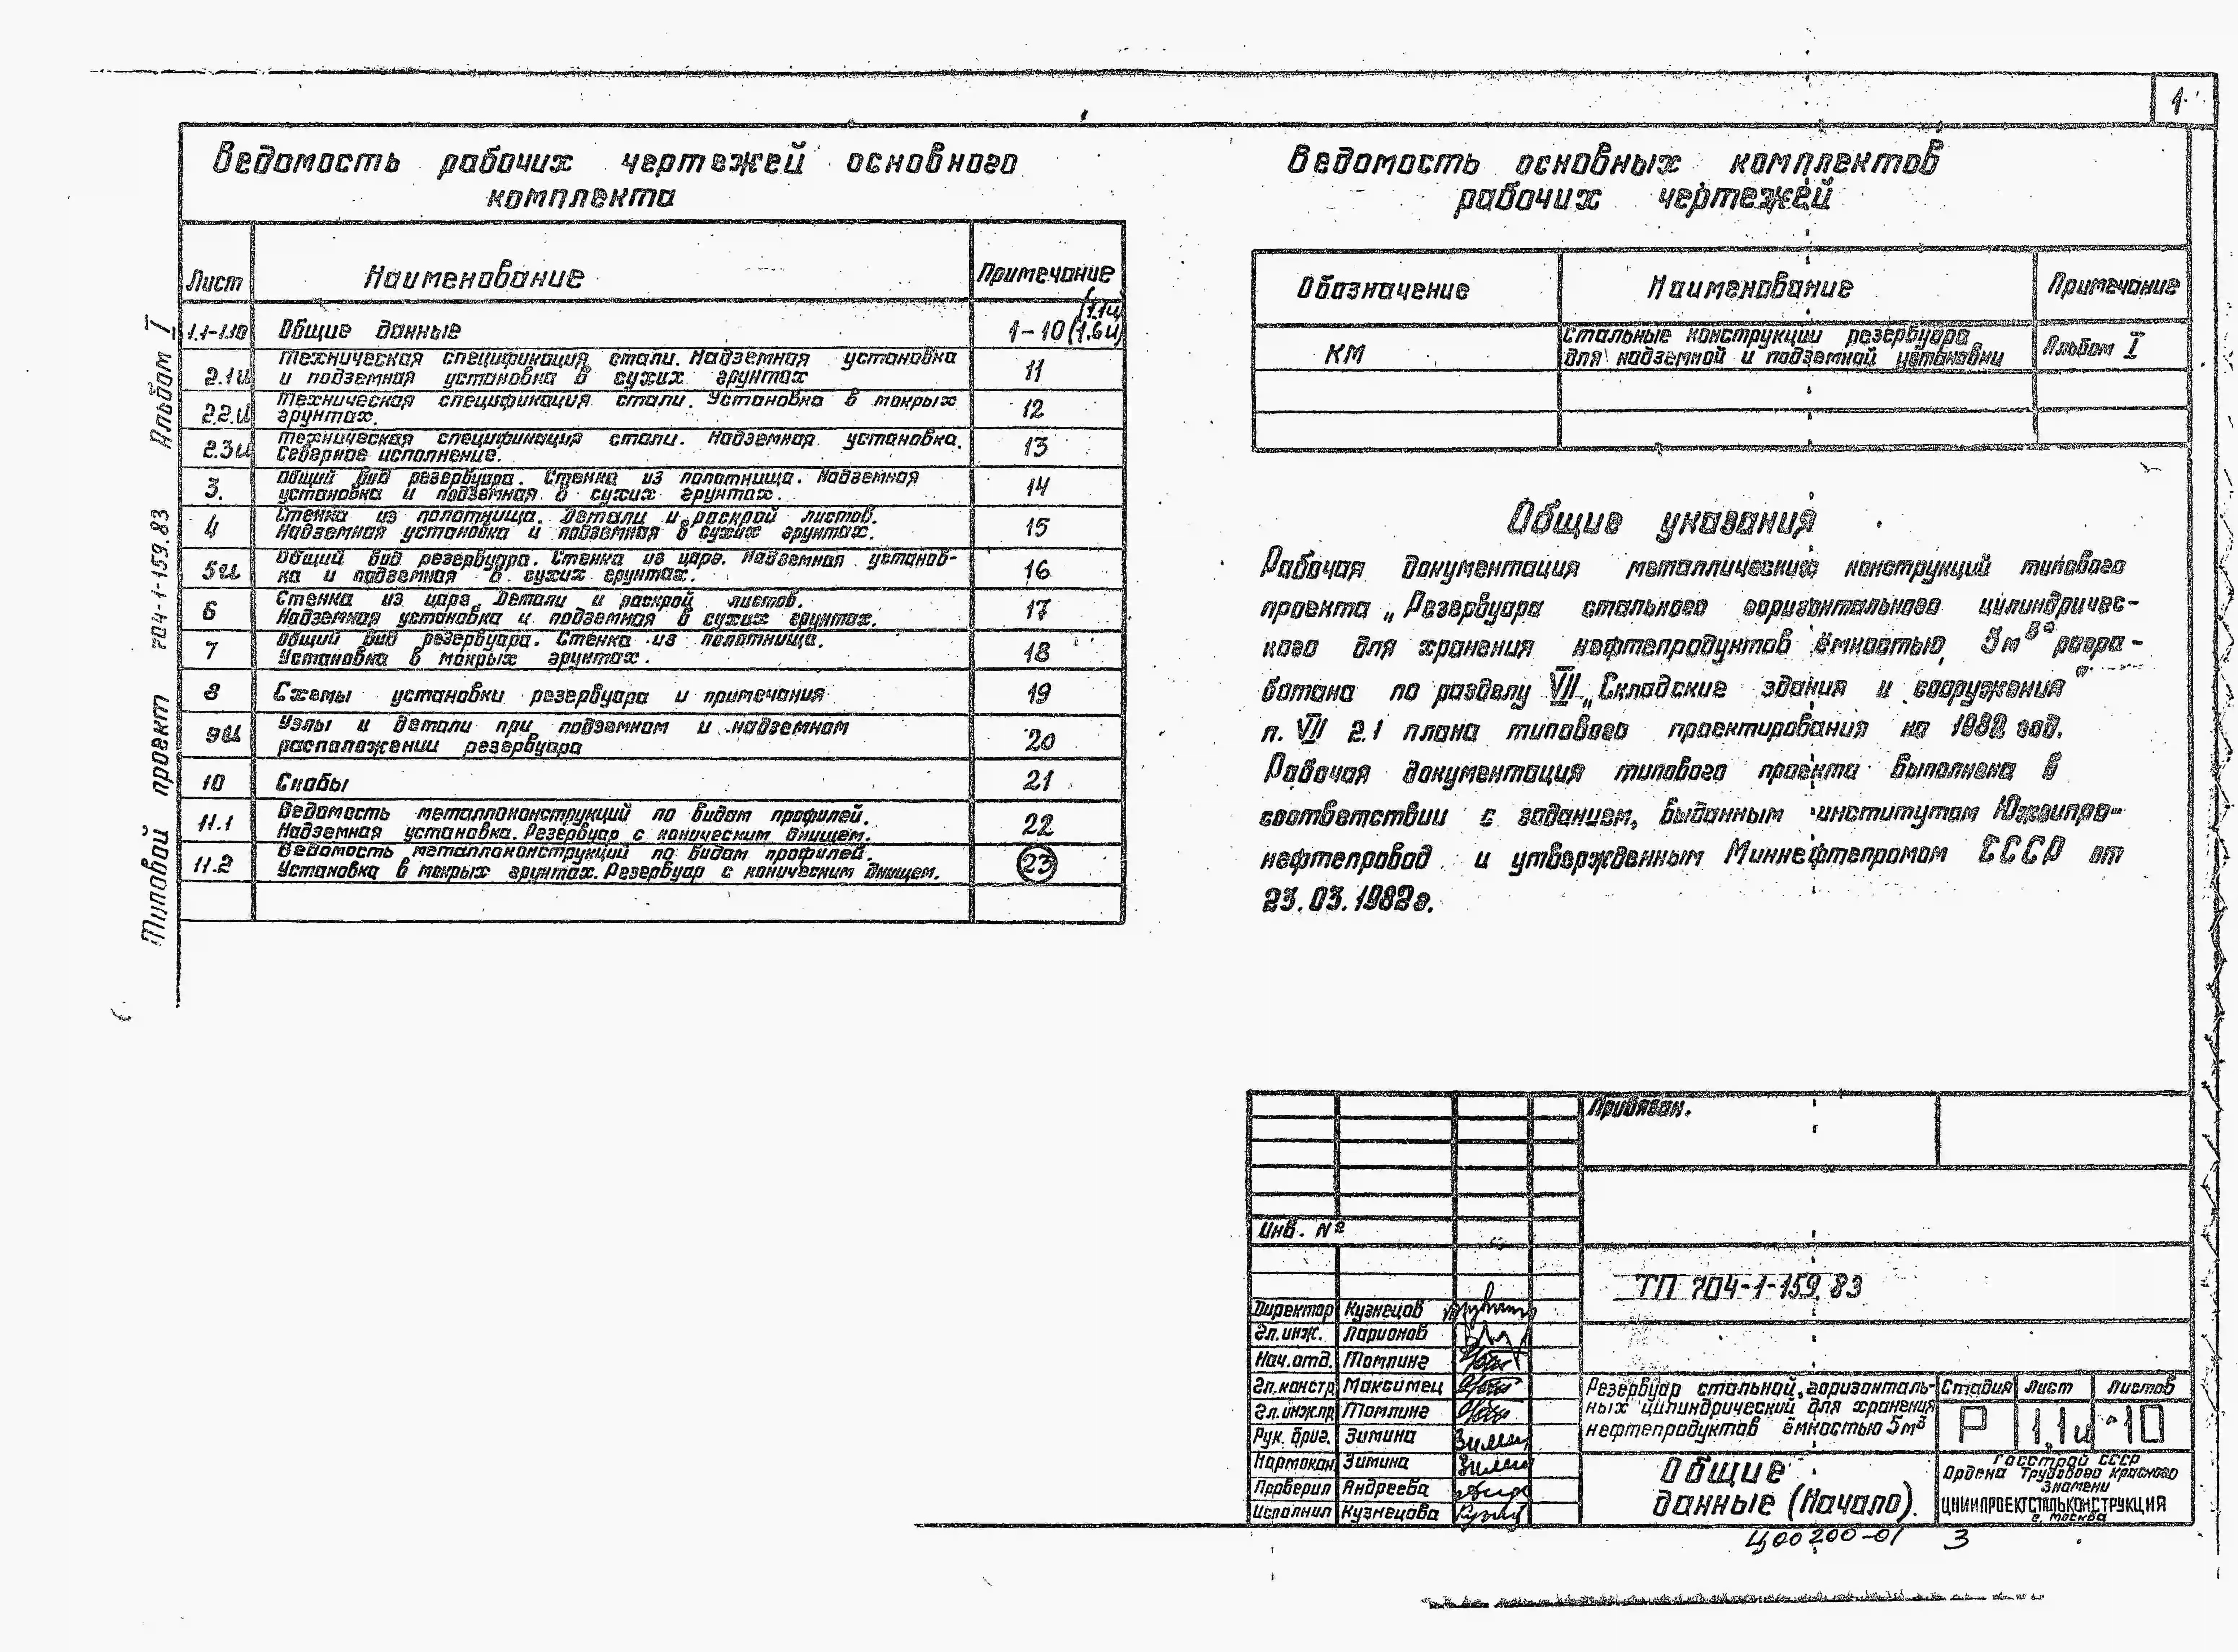 1
Ведомость рабочих чертежей основного
комплекта
Лист Наименование Примечание
1.1-1.10 Общие данные 1-10 (1.1и) (1.6и)
2.1и Техническая спецификация стали. Надземная установка
и подземная установка в сухих грунтах 11
2.2.и Техническая спецификация стали. Установка в мокрых
грунтах. 12
2.3и Техническая спецификация стали. Надземная установка.
Северное исполнение. 13
3. Общий вид резервуара. Стенка из полотнища. Надземная
установка и подземная в сухих грунтах. 14
4 Стенка из полотнища. Детали и раскрой листов.
Надземная установка и подземная в сухих грунтах. 15
5и Общий вид резервуара. Стенка из царг. Надземная установ-
ка и подземная в сухих грунтах. 16
6 Стенка из царг. Детали и раскрой листов.
Надземная установка и подземная в сухих грунтах. 17
7 Общий вид резервуара. Стенка из полотнища.
Установка в мокрых грунтах. 18
8 Схемы установки резервуара и примечания 19
9и Узлы и детали при подземном и надземном
расположении резервуара 20
10 Скобы 21
11.1 Ведомость металлоконструкций по видам профилей.
Надземная установка. Резервуар с коническим днищем. 22
11.2 Ведомость металлоконструкций по видам профилей.
Установка в мокрых грунтах. Резервуар с коническим днищем. 23
Типовой проект 704-1-159.83 Альбом I
Ведомость основных комплектов
рабочих чертежей
Обозначение Наименование Примечание
КМ Стальные конструкции резервуара
для надземной и подземной установки Альбом I
Общие указания
Рабочая документация металлических конструкций типового
проекта „Резервуара стального горизонтального цилиндричес-
кого для хранения нефтепродуктов ёмкостью 5м³" разра-
ботана по разделу VII „Складские здания и сооружения"
п. VII 2.1 плана типового проектирования на 1982 год.
Рабочая документация типового проекта выполнена в
соответствии с заданием, выданным институтом Южгипро-
нефтепровод и утвержденным Миннефтепромом СССР от
23.03.1982г.
Привязан.
Инв. №
ТП 704-1-159.83
Директор Кузнецов
Гл.инж. Ларионов
Нач.отд. Томлинг
Гл.констр Максимец
Гл.инж.пр Томлинг
Рук. бриг. Зимина
Нормокон. Зимина
Проверил Андреева
Исполнил Кузнецова
Резервуар стальной, горизонталь-
ных цилиндрический для хранения
нефтепродуктов ёмкостью 5м³
Стадия Лист Листов
Р 1.1и 10
Общие
данные (Начало).
Госстрой СССР
Ордена Трудового Красного
Знамени
ЦНИИПРОЕКТСТАЛЬКОНСТРУКЦИЯ
г. Москва
Ц00200-01 3